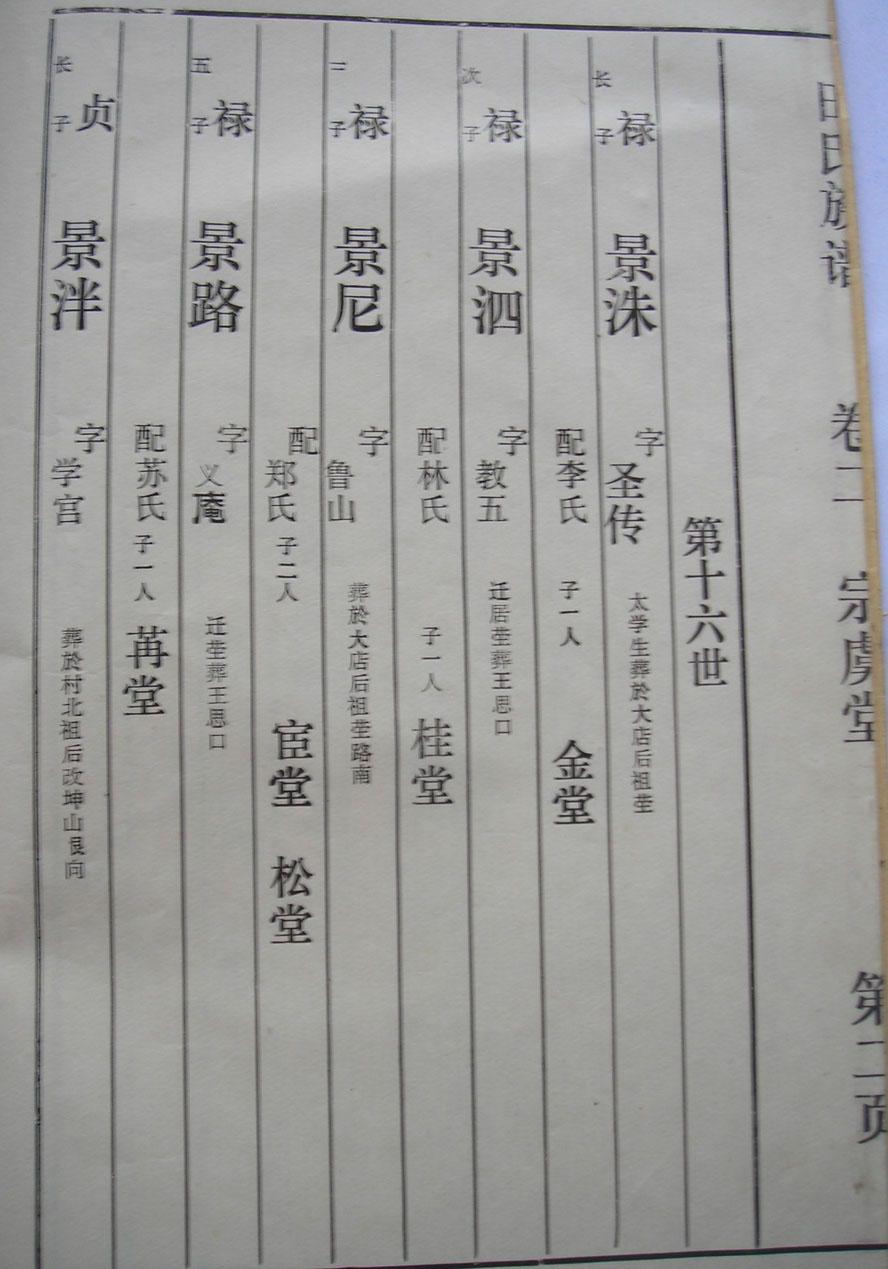 田氏族谱 卷二 宗虞堂 第二页
第十六世
禄长子 景洙 字圣传 太学生葬於大店后祖茔
配李氏 子一人 金堂
禄次子 景泗 字教五 迁居茔葬王思口
配林氏 子一人 桂堂
禄二子 景尼 字鲁山 葬於大店后祖茔路南
配郑氏 子二人 宦堂 松堂
禄五子 景路 字义庵 迁茔葬王思口
配苏氏 子一人 苒堂
贞长子 景泮 字学宫 葬於村北祖后改坤山艮向